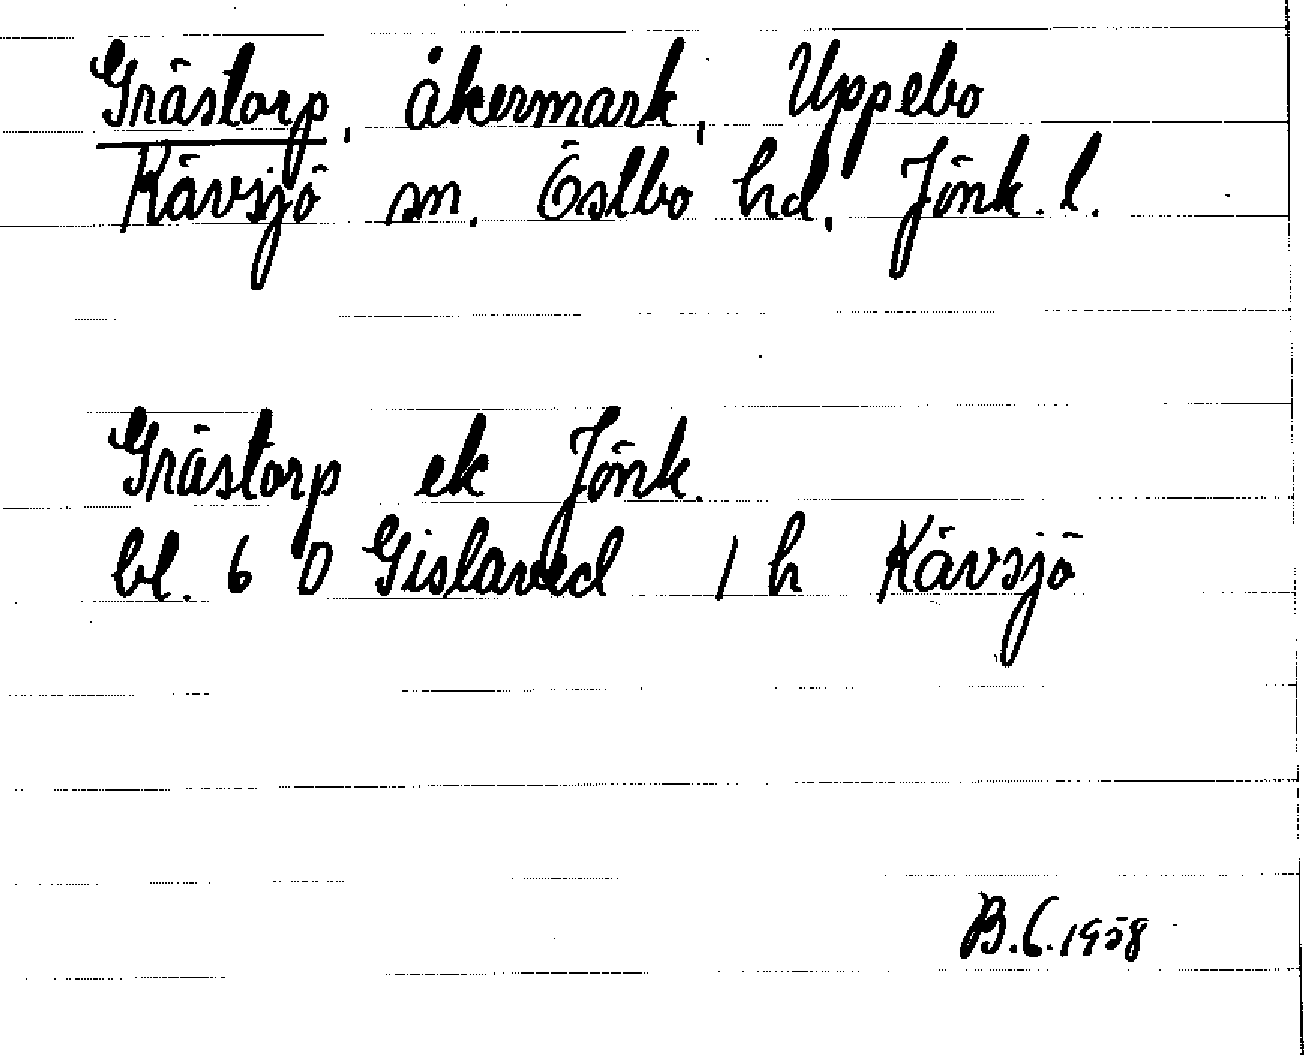 Grästorp, åkermark, Uppebo
Kävsjö sn. Östbo hd. Jönk. l.
Grästorp ek Jönk.
bl. 6 D Gislaved 1 h Kävsjö
B.C. 1958